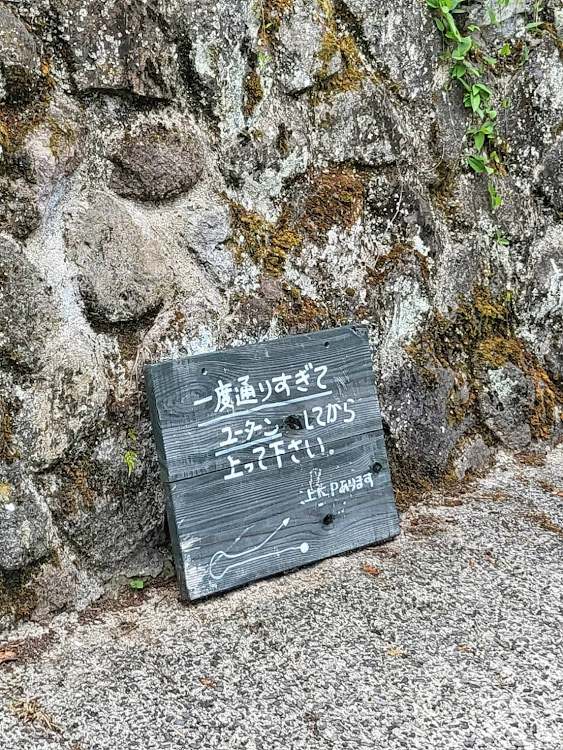 一度通りすぎて
ユーターンしてから
上って下さい。
上にPあります